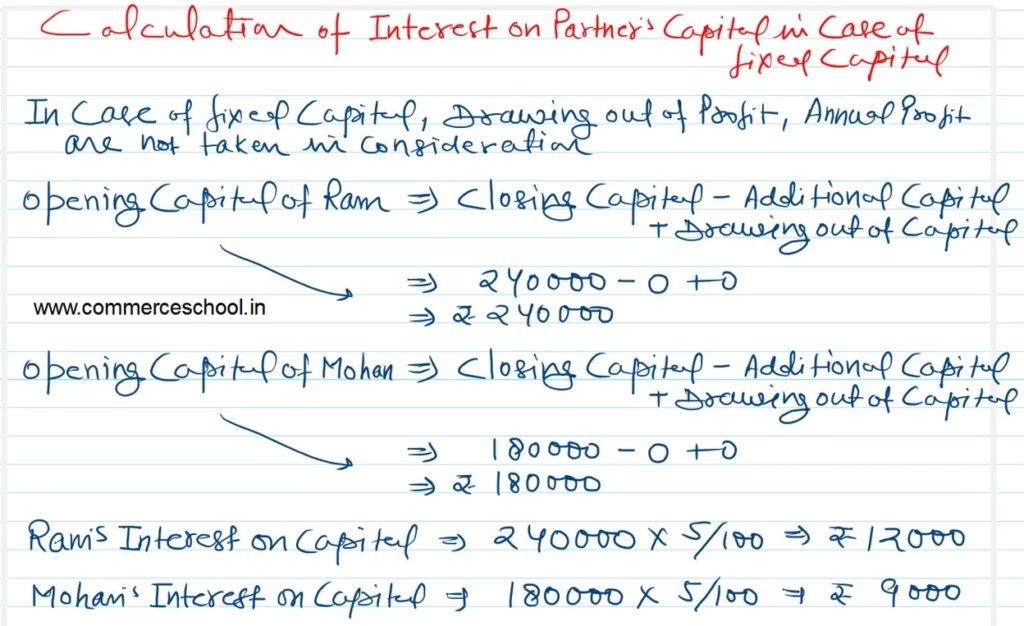 Calculation of Interest on Partner's Capital in Case of
fixed Capital
In Case of fixed Capital, Drawing out of Profit, Annual Profit
are not taken in consideration
Opening Capital of Ram ⇒ Closing Capital - Additional Capital
+ Drawing out of Capital
⇒ 240000 - 0 + 0
www.commerceschool.in
⇒ ₹ 240000
Opening Capital of Mohan ⇒ Closing Capital - Additional Capital
+ Drawing out of Capital
⇒ 180000 - 0 + 0
⇒ ₹ 180000
Ram's Interest on Capital ⇒ 240000 × 5/100 ⇒ ₹ 12000
Mohan's Interest on Capital ⇒ 180000 × 5/100 ⇒ ₹ 9000